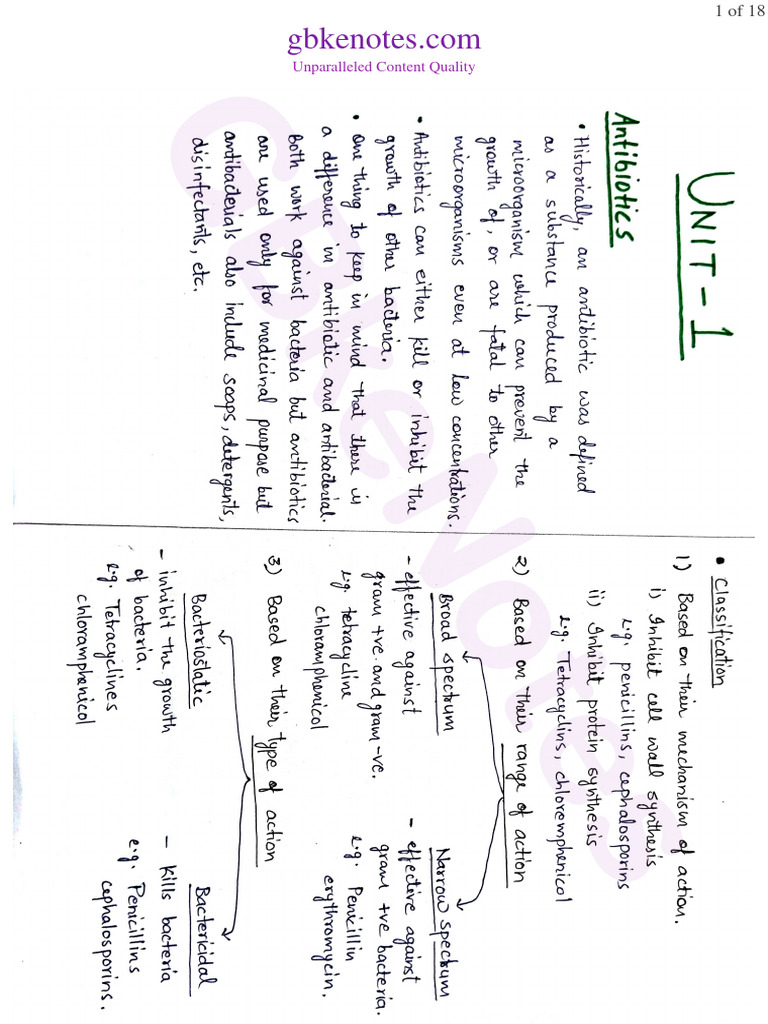 1 of 18
gbkenotes.com
Unparalleled Content Quality
UNIT-1
Antibiotics
• Historically, an antibiotic was defined
as a substance produced by a
microorganism which can prevent the
growth of, or are fatal to other
microorganisms even at low concentrations.
• Antibiotics can either kill or inhibit the
growth of other bacteria.
• One thing to keep in mind that there is
a difference in antibiotic and antibacterial.
Both work against bacteria but antibiotics
are used only for medicinal purpose but
antibacterials also include soaps, detergents,
disinfectants, etc.
• Classification
1) Based on their mechanism of action.
i) Inhibit cell wall synthesis
e.g. penicillins, cephalosporins
ii) Inhibit protein synthesis
e.g. Tetracyclins, chloremphenicol
2) Based on their range of action
Broad spectrum
- effective against
gram +ve and gram -ve.
e.g. tetracycline
chloramphenicol
Narrow spectrum
- effective against
gram +ve bacteria.
e.g. Penicillin
erythromycin.
3) Based on their type of action
Bacteriostatic
- inhibit the growth
of bacteria.
e.g. Tetracyclines
chloramphenicol
Bactericidal
- Kills bacteria
e.g. Penicillins
cephalosporins.
GBkeNotes